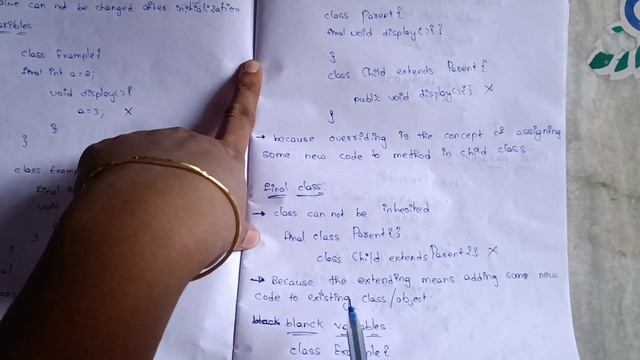 value can not be changed after initialization
variables:
class Example{
final int a=2;
void display(){
a=3; X
}
}
class
class Parent{
final void display(){}
}
class Child extends Parent{
public void display(){} X
}
→ because overriding is the concept of assigning
some new code to method in child class.
final class:
→ class can not be inherited
final class Parent{}
class Child extends Parent{} X
→ Because the extending means adding some new
code to existing class/object
blanck variables:
class Example{